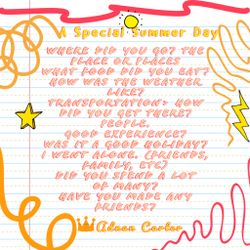 A Special Summer Day
WHERE DID YOU GO? THE
PLACE OR PLACES
WHAT FOOD DID YOU EAT?
HOW WAS THE WEATHER
LIKE?
TRANSPORTATION> HOW
DID YOU GET THERE?
PEOPLE.
GOOD EXPERIENCE?
WAS IT A GOOD HOLIDAY?
I WENT ALONE. (FRIENDS,
FAMILY, ETC)
DID YOU SPEND A LOT
OF MANY?
HAVE YOU MADE ANY
FRIENDS?
Aileen Carter